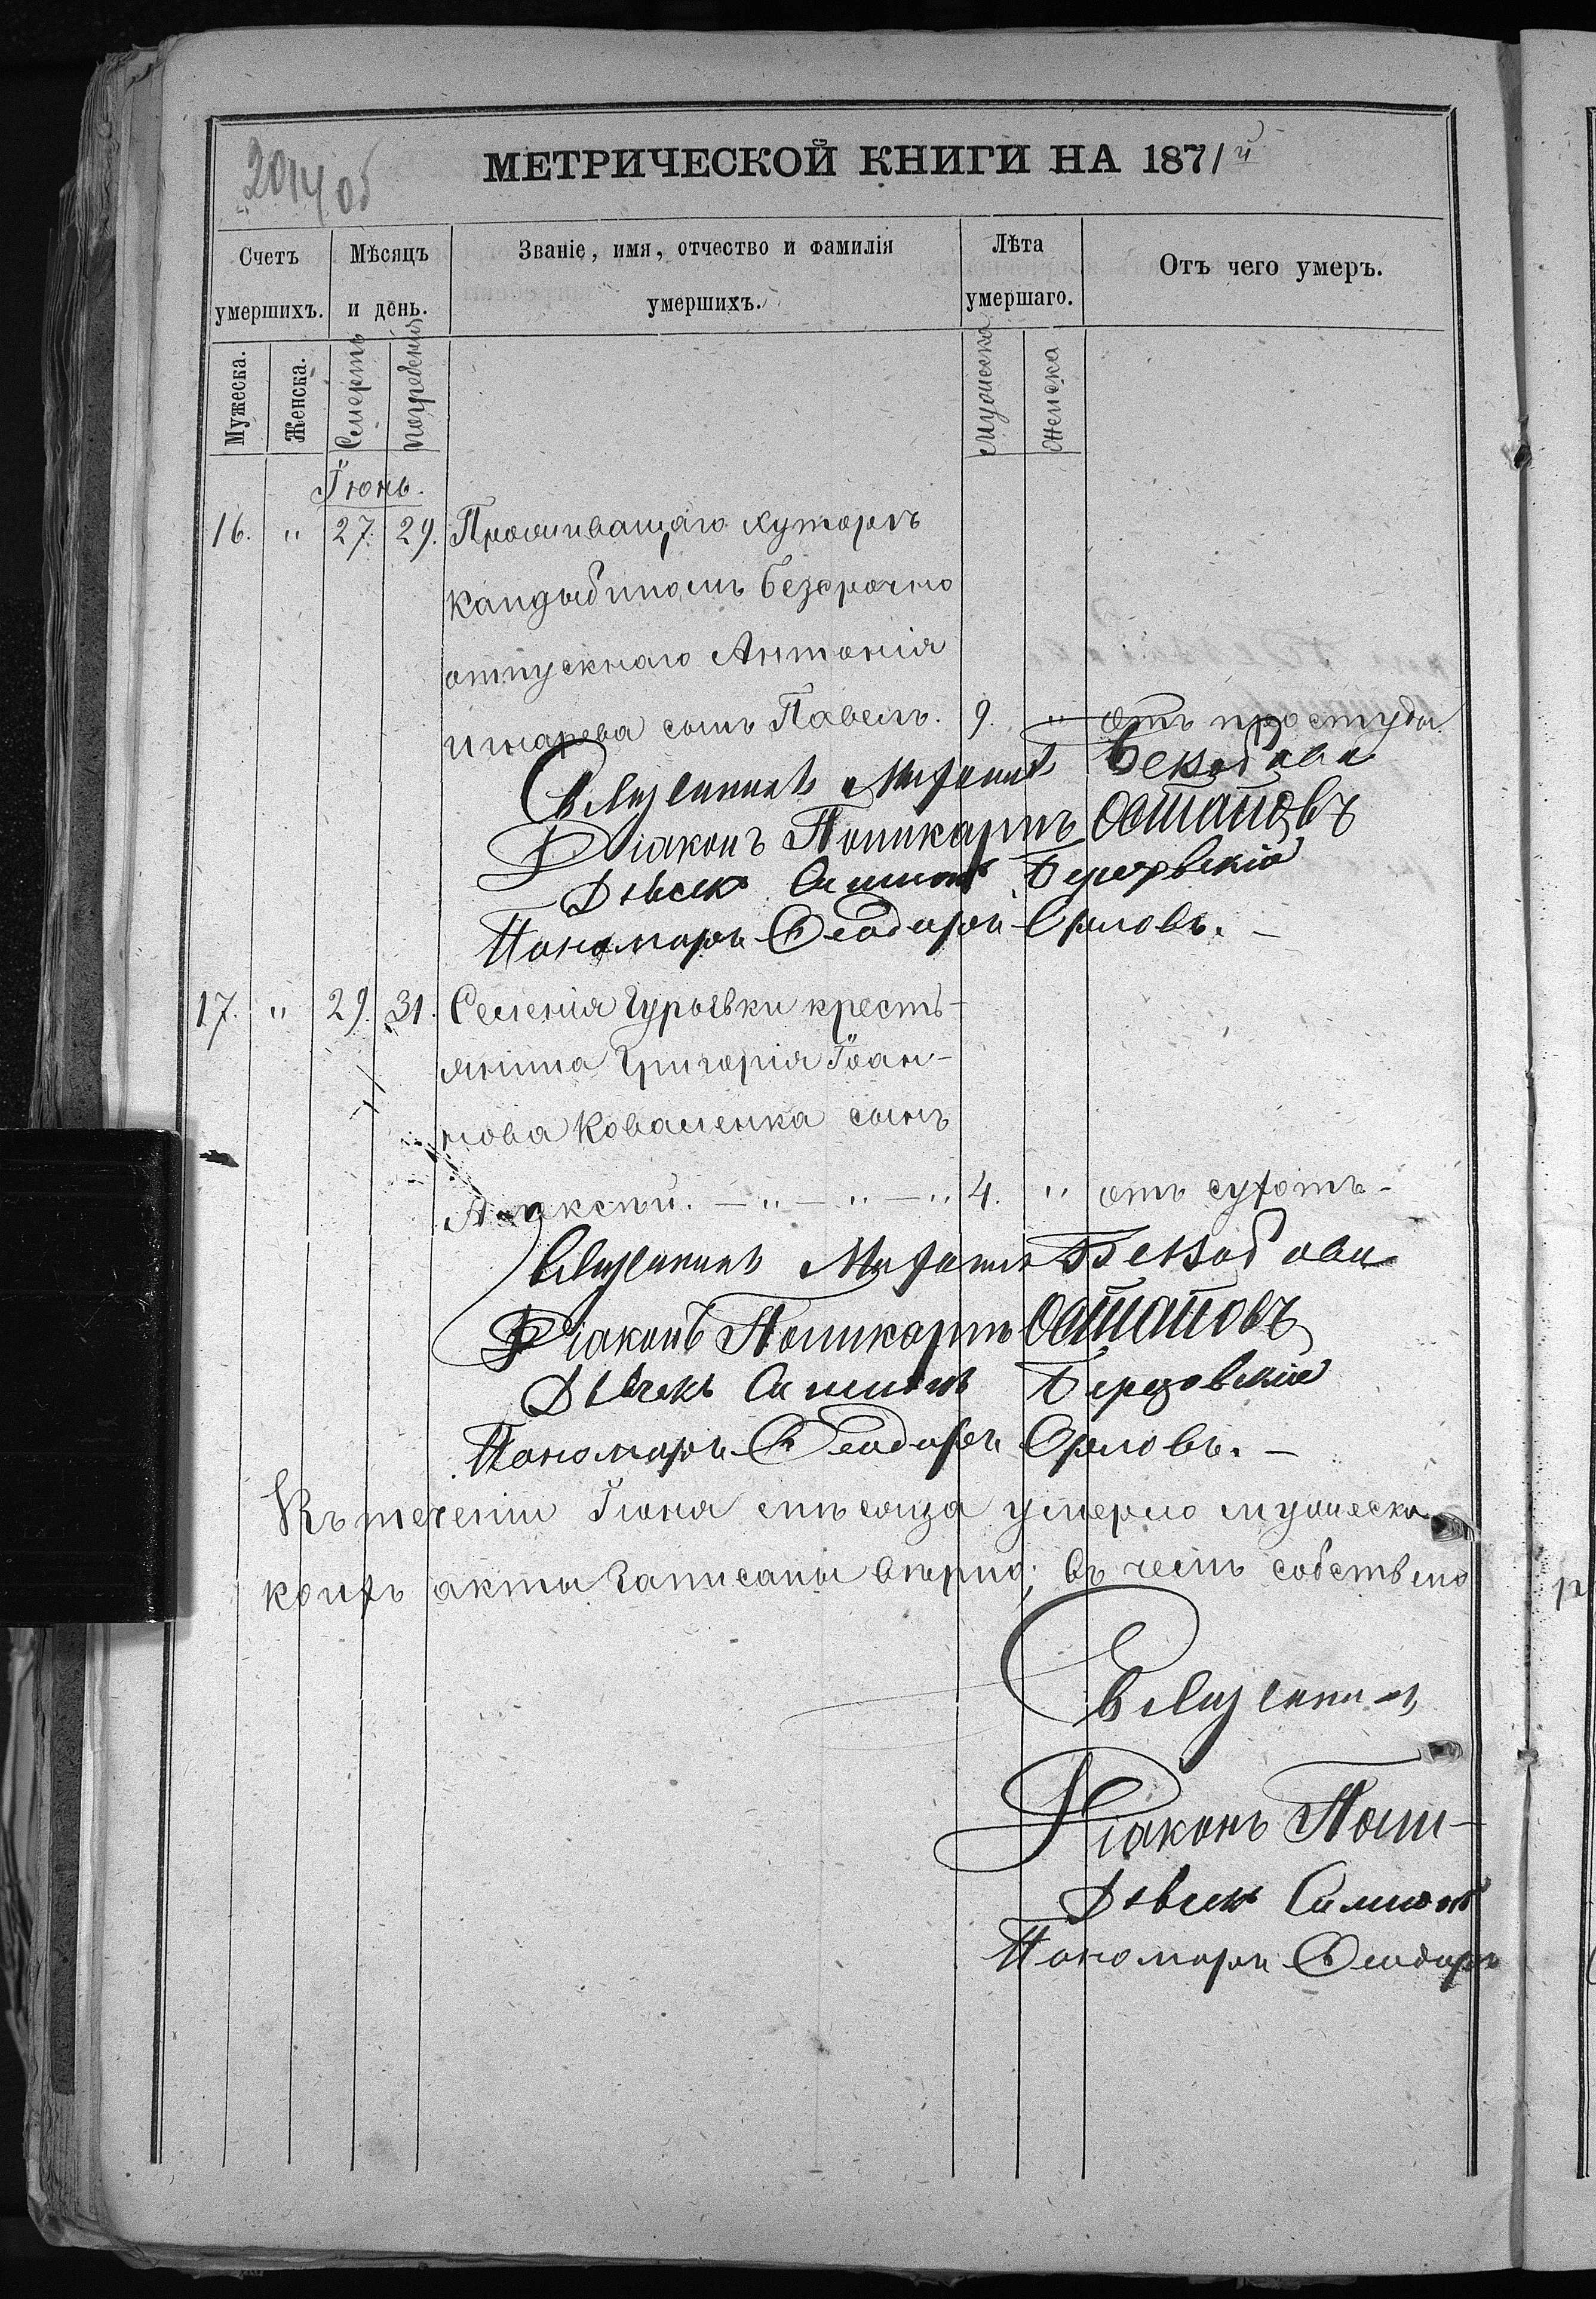 2014 об
МЕТРИЧЕСКОЙ КНИГИ НА 1871й
Счетъ умершихъ.
Мѣсяцъ и день.
Званіе, имя, отчество и фамилія умершихъ.
Лѣта умершаго.
Отъ чего умеръ.
Мужеска.
Женска.
Смерть
погребенія
Мужеска
Женска
Іюнь.
16. " 27. 29. Проживащаго хуторѣ
Кандыбиномъ безсрочно
отпускнаго Антонія
сынъ Павелъ. 9. " отъ простуды
Священникъ Михаилъ
Діаконъ Поликарпъ Остаповъ
Дьячек Симеонъ
Пономарь Ѳеодоръ Орловъ.
17. " 29. 31. Селенія Гурьевки кресть-
янина Григорія Іоан-
нова Коваленка сынъ
Алексѣй. — " — " — " 4. " отъ сухотъ-
Священникъ Михаилъ
Діаконъ Поликарпъ Остаповъ
Дьячекъ Симеонъ
Пономарь Ѳеодоръ Орловъ. —
Въ теченіи Іюня мѣсяца умерло мужеска
коихъ акты записаны вѣрно; въ чемъ собственно
Священникъ
Діаконъ Поли-
Дьячек Симеонъ
Пономарь Ѳеодоръ